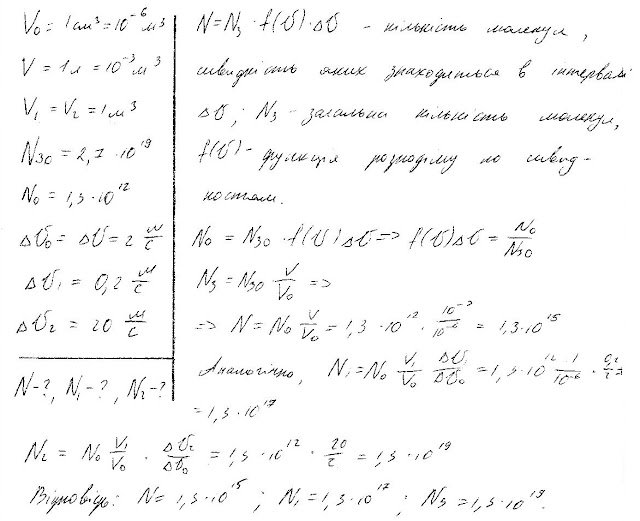 V₀ = 1 см³ = 10⁻⁶ м³
V = 1 л = 10⁻³ м³
V₁ = V₂ = 1 м³
N₃₀ = 2,7 · 10¹⁹
N₀ = 1,3 · 10¹²
Δʋ₀ = Δʋ = 2 м/с
Δʋ₁ = 0,2 м/с
Δʋ₂ = 20 м/с
N-?, N₁-?, N₂-?
N = N₃ · f(ʋ) · Δʋ - кількість молекул,
швидкість яких знаходиться в інтервалі
Δʋ; N₃ - загальна кількість молекул,
f(ʋ) - функція розподілу по швид-
костям.
N₀ = N₃₀ · f(ʋ) Δʋ => f(ʋ) Δʋ = N₀/N₃₀
N₃ = N₃₀ V/V₀ =>
=> N = N₀ V/V₀ = 1,3 · 10¹² · 10⁻³/10⁻⁶ = 1,3 · 10¹⁵
Аналогічно, N₁ = N₀ V₁/V₀ Δʋ₁/Δʋ₀ = 1,3 · 10¹² · 1/10⁻⁶ · 0,2/2 =
= 1,3 · 10¹⁷
N₂ = N₀ V₁/V₀ · Δʋ₂/Δʋ₀ = 1,3 · 10¹² · 20/2 = 1,3 · 10¹⁹
Відповідь: N = 1,3 · 10¹⁵; N₁ = 1,3 · 10¹⁷; N₃ = 1,3 · 10¹⁹.